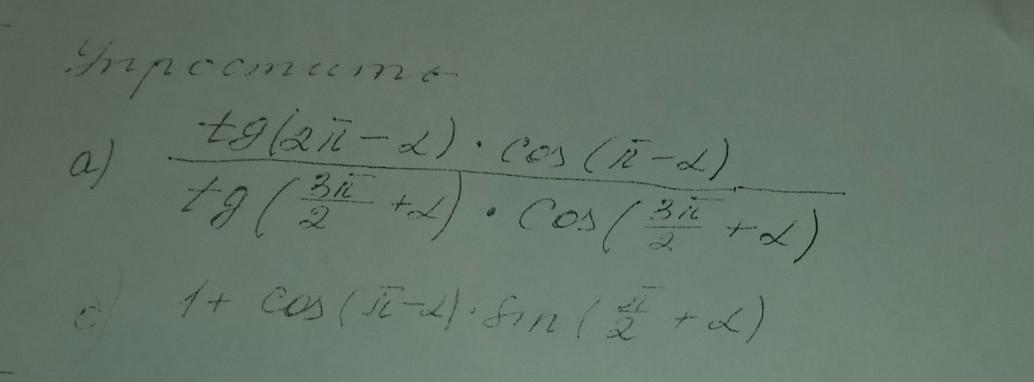 Упростить
а) tg(2π-α)·cos(π-α) / tg(3π/2+α)·cos(3π/2+α)
1+cos(π-α)·sin(π/2+α)